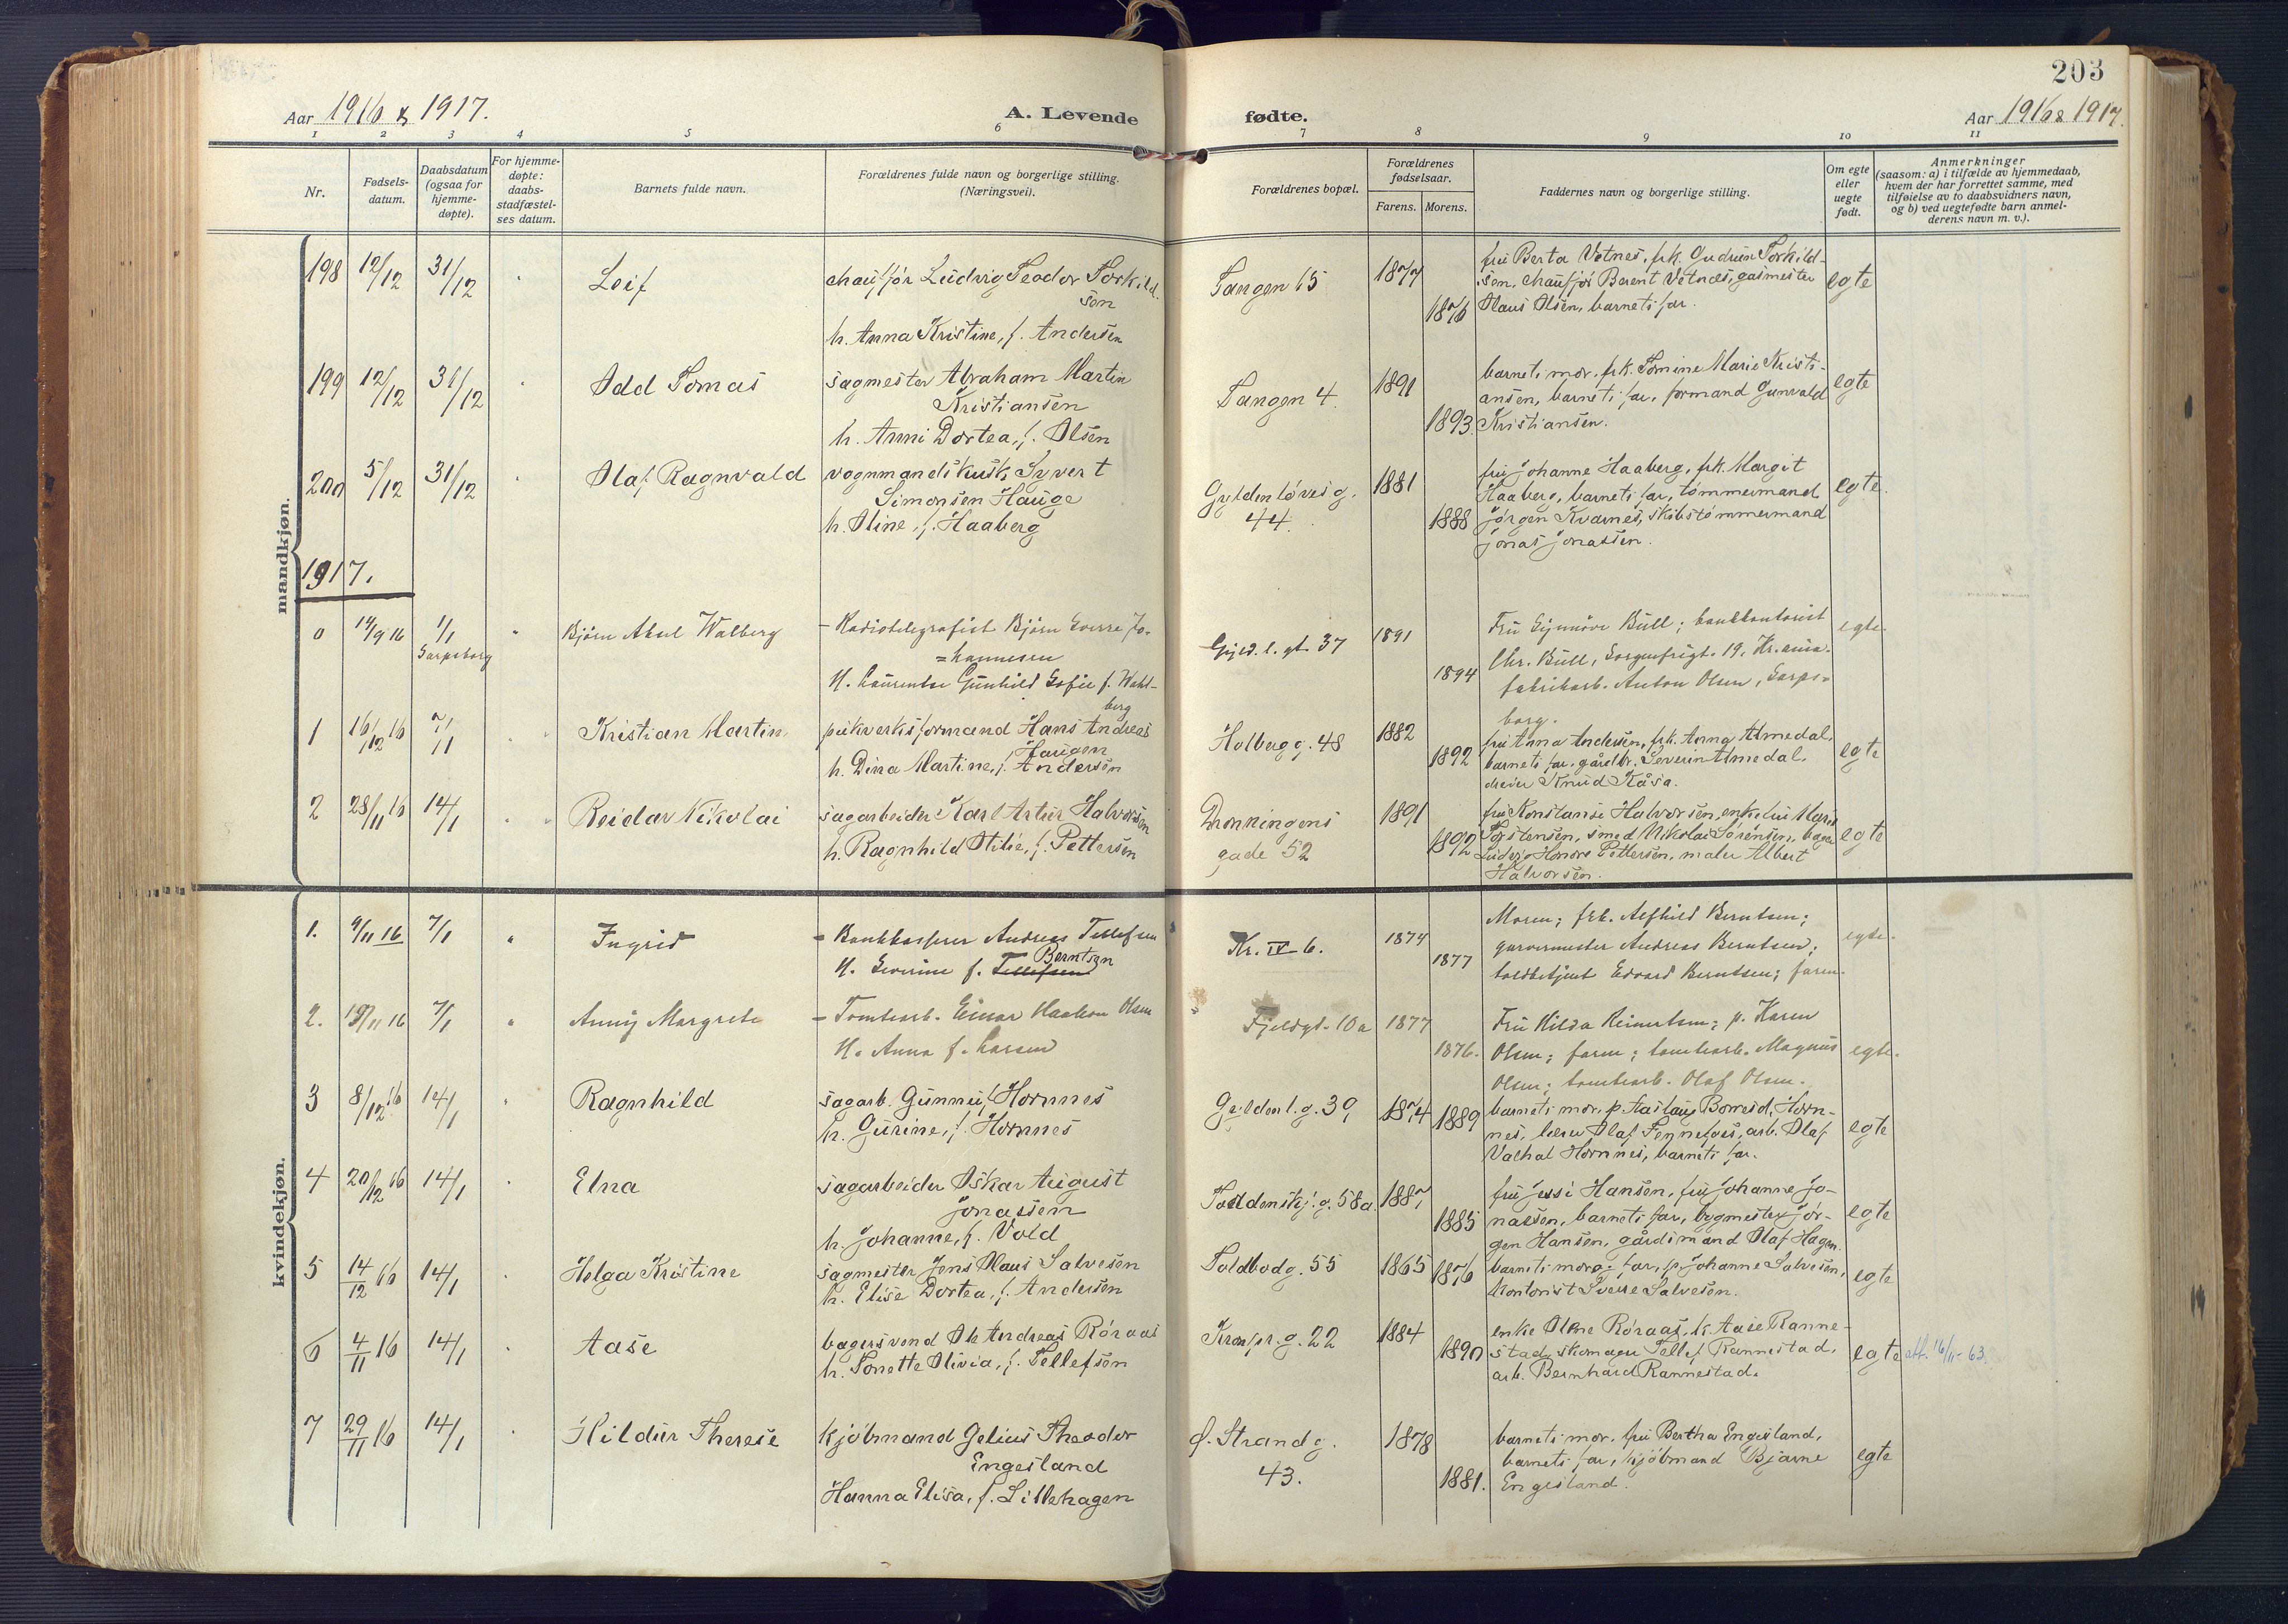 203
Aar 1916 & 1917.
A. Levende
fødte.
Aar 1916 & 1917.
1 2 3 4 5 6 7 8 9 10 11
Nr.
Fødsels-
datum.
Daabsdatum
(ogsaa for
hjemme-
døpte).
For hjemme-
døpte:
daabs-
stadfæstel-
ses datum.
Barnets fulde navn.
Forældrenes fulde navn og borgerlige stilling.
(Næringsvei).
Forældrenes bopæl.
Forældrenes
fødselsaar.
Farens. Morens.
Faddernes navn og borgerlige stilling.
Om egte
eller
uegte
født.
Anmerkninger
(saasom: a) i tilfælde av hjemmedaab,
hvem der har forrettet samme, med
tilføielse av to daabsvidners navn,
og b) ved uegtefødte barn anmel-
derens navn m. v.).
mandkjøn.
198 12/12 31/12 Leif
chauffør Ludvig Teodor Torkild-
sen
h. Anna Kristine, f. Andersen
Tangen 15 1877 1876
fru Berta Vetnes, frk. Gudrun Torkild-
sen, chauffør Berent Vetnes, gasmester
Olaus Olsen, barnets far.
egte
199 12/12 31/12 Odd Tomas
sagmester Abraham Martin
Kristiansen
h. Anni Dortea, f. Olsen
Tangen 4. 1891 1893
barnets mor, frk. Tomine Marie Kristi-
ansen, barnets far, formand Gunvald
Kristiansen.
egte
200 5/12 31/12 Olaf Ragnvald
vognmandskusk Syvert
Simonsen Hauge
h. Oline, f. Haaberg
Gyldenløvesg.
44. 1881 1888
fru Johanne Haaberg, frk. Margit
Haaberg, barnets far, tømmermand
Jørgen Kvarnes, skibstømmermand
Jonas Jonassen.
egte.
1917.
0 14/9 16 1/1
Sarpsborg
Bjørn Aksel Walberg
- Radiotelegrafist Bjørn Sverre Jo-
=hannesen
H. Laurentse Gunhild Sofie f. Wahl-
berg
Gyld. l. gt. 37 1891 1894
Fru Synnøve Bull; bankkontorist
Chr. Bull, Sorgenfrigt. 19, Kr.ania.
fabrikarb. Anton Olsen, Sarps-
borg.
egte.
1 16/12 16 7/1 Kristian Martin
pukverksformand Hans Andreas
Haugen
h. Dina Martine, f. Andersen
Holbergg. 48 1882 1892
fru Anna Andersen, frk. Anna Almedal,
barnets far, gårdbr. Severin Almedal,
dreier Knud Kåsa.
egte
2 28/11 16 14/1 Reidar Nikolai
sagarbeider Karl Artur Halvorsen
h. Ragnhild Otilie, f. Pettersen
Dronningens
gade 52 1891 1892
fru Konstanse Halvorsen, enkefru Maria
Torstensen, smed Nikolai Sørensen, bager
Ludvig Honoré Pettersen, maler Albert
Halvorsen.
egte
kvindekjøn.
1. 9/11 16 7/1 Ingrid
- Bankkasserer Andreas Tellefsen
Berntsen
H. Severine f. Tellefsen
Kr. IV 6. 1874 1877
Moren; frk. Alfhild Berntsen;
garvermester Andreas Berntsen;
toldbetjent Edvard Berntsen; faren.
egte.
2. 19/11 16 7/1 Anny Margrete
- Tomtearb. Einar Haakon Olsen
H. Anna f. Larsen
Fjeldgt. 10a 1877 1876.
Fru Hilda Reinertsen; p. Karen
Olsen; faren; tomtearb. Magnus
Olsen; tomtearb. Olaf Olsen.
egte.
3 8/12 16 14/1 Ragnhild
sagarb. Gunnuf Hornnes
h. Gurine, f. Hornnes
Gyldenl. g. 39, 1874 1889
barnets mor, p. Aaslaug Horn-
nes, lærer Olaf Fennefoss, arb. Olaf
Valhal Hornnes, barnets far.
egte
4 20/12 16 14/1 Elna
sagarbeider Oskar August
Jonassen
h. Johanne, f. Vold
Tordenskj. g. 58a. 1887 1885
fru Jessi Hansen, fru Johanne Jo-
nassen, barnets far, bygmester Jør-
gen Hansen, gårdsmand Olaf Hagen.
egte
5 14/12 16 14/1 Helga Kristine
sagmester Jens Olaus Salvesen
h. Elise Dortea, f. Andersen
Toldbodg. 55 1865 1876
barnets mor og far, p. Johanne Salvesen,
kontorist Sverre Salvesen.
egte
6 4/11 16 14/1 Aase
bagersvend Ole Andreas Röraas
h. Tonette Olivia, f. Tellefsen
Kronpr. g. 22 1884 1890
enke Oline Röraas, k. Aase Ranne-
stad, skomager Tellef Rannestad,
arb. Bernhard Rannestad.
egte
att. 16/11-63.
7 29/11 16 14/1 Hildur Therese
kjøbmand Gelius Theodor
Engesland
Hanna Elisa, f. Lillehagen
Ø. Strandg.
43. 1878 1881.
barnets mor, fru Bertha Engesland,
barnets far, kjøbmand Bjarne
Engesland.
egte